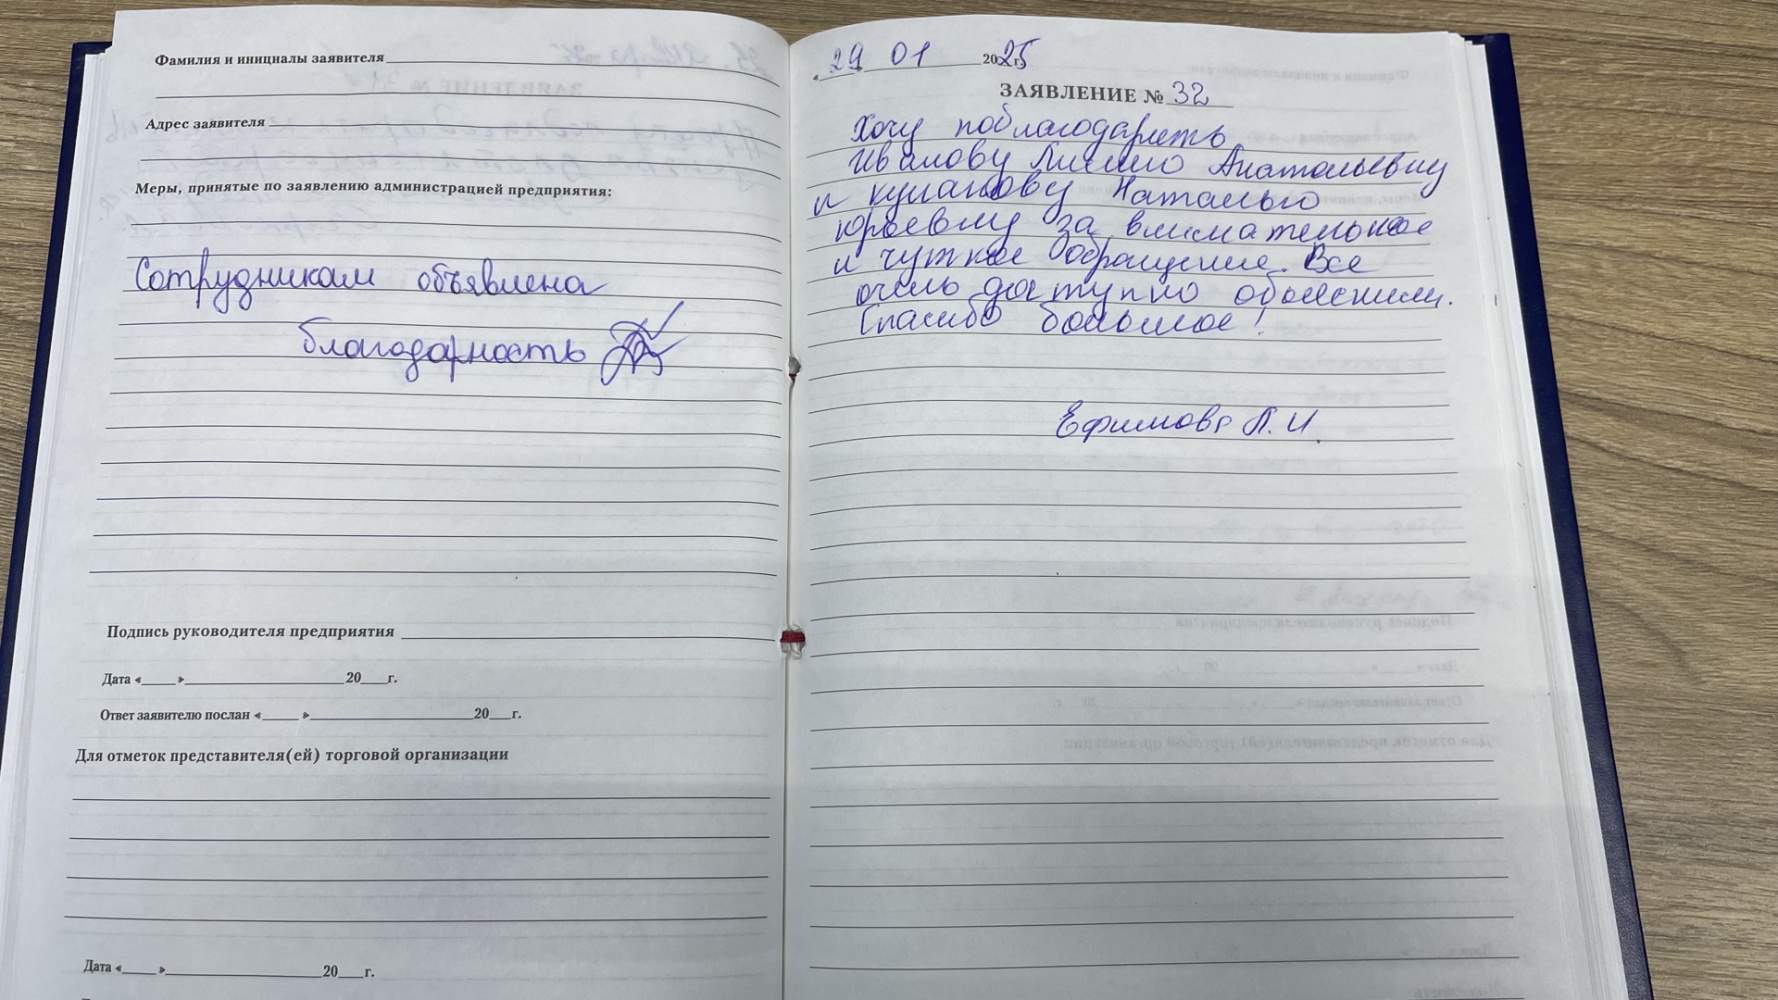 Фамилия и инициалы заявителе
Адрес заявителя
Меры, принятые по заявлению администрацией предприятия:
Сотрудникам объявлена
благодарность
Подпись руководителя предприятия
Дата « » 20 г.
Ответ заявителю послан « » 20 г.
Для отметок представителя(ей) торговой организации
Дата « » 20 г.
29 01 2025
ЗАЯВЛЕНИЕ № 32
Хочу поблагодарить
Иванову Лилию Анатольевну
и Кулакову Наталью
Юрьевну за внимательное
и чуткое обращение. Все
очень доступно объяснили.
Спасибо большое!
Ефимова Л. И.